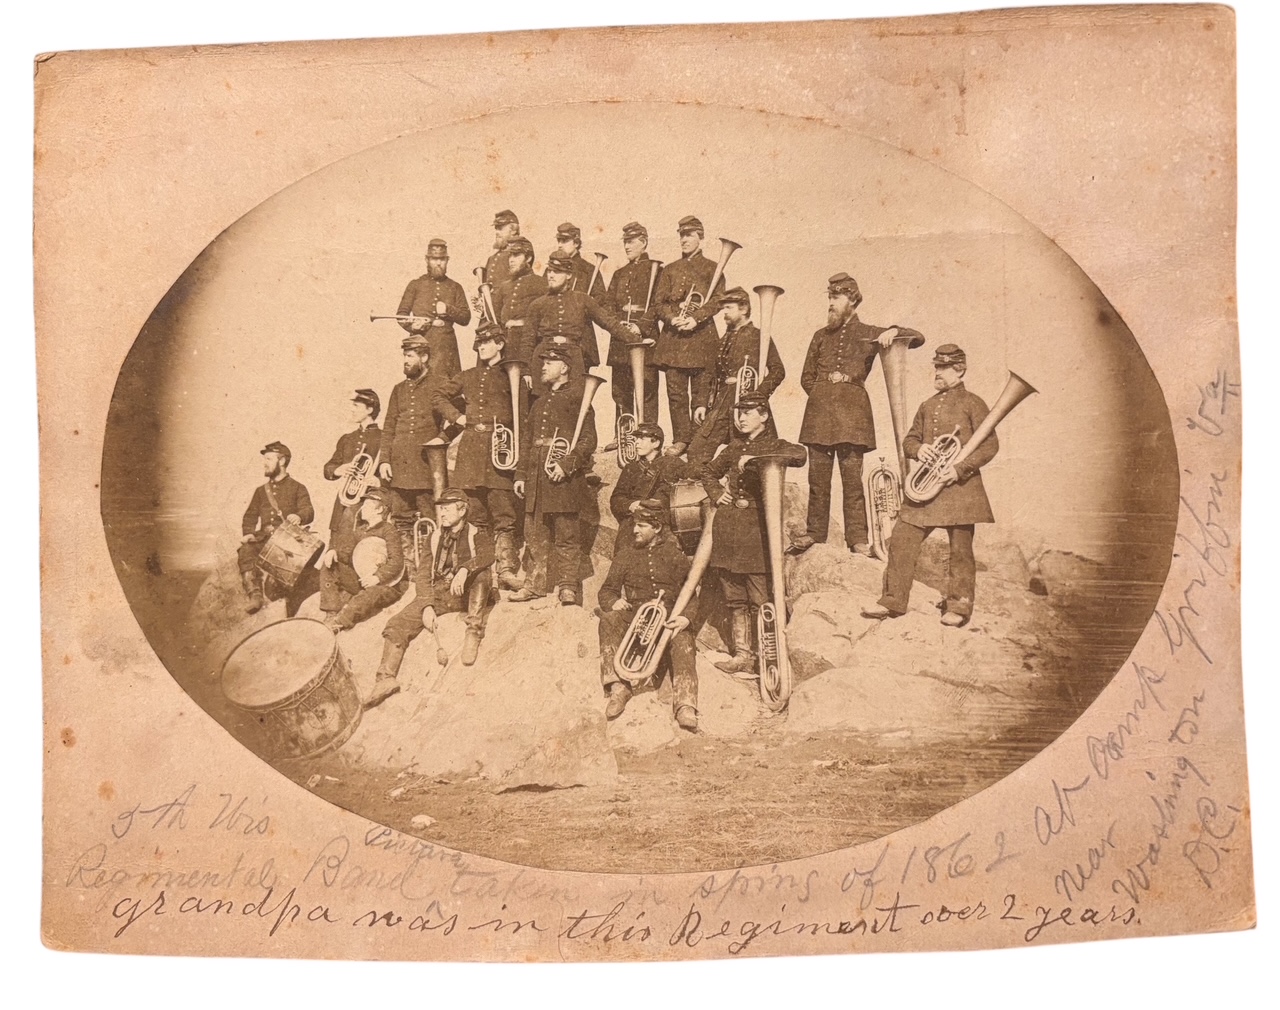 5th Wis
Regimental Band, taken in spring of 1862 at Camp Griffin Va
near
Washington
D.C.
grandpa was in this Regiment over 2 years.